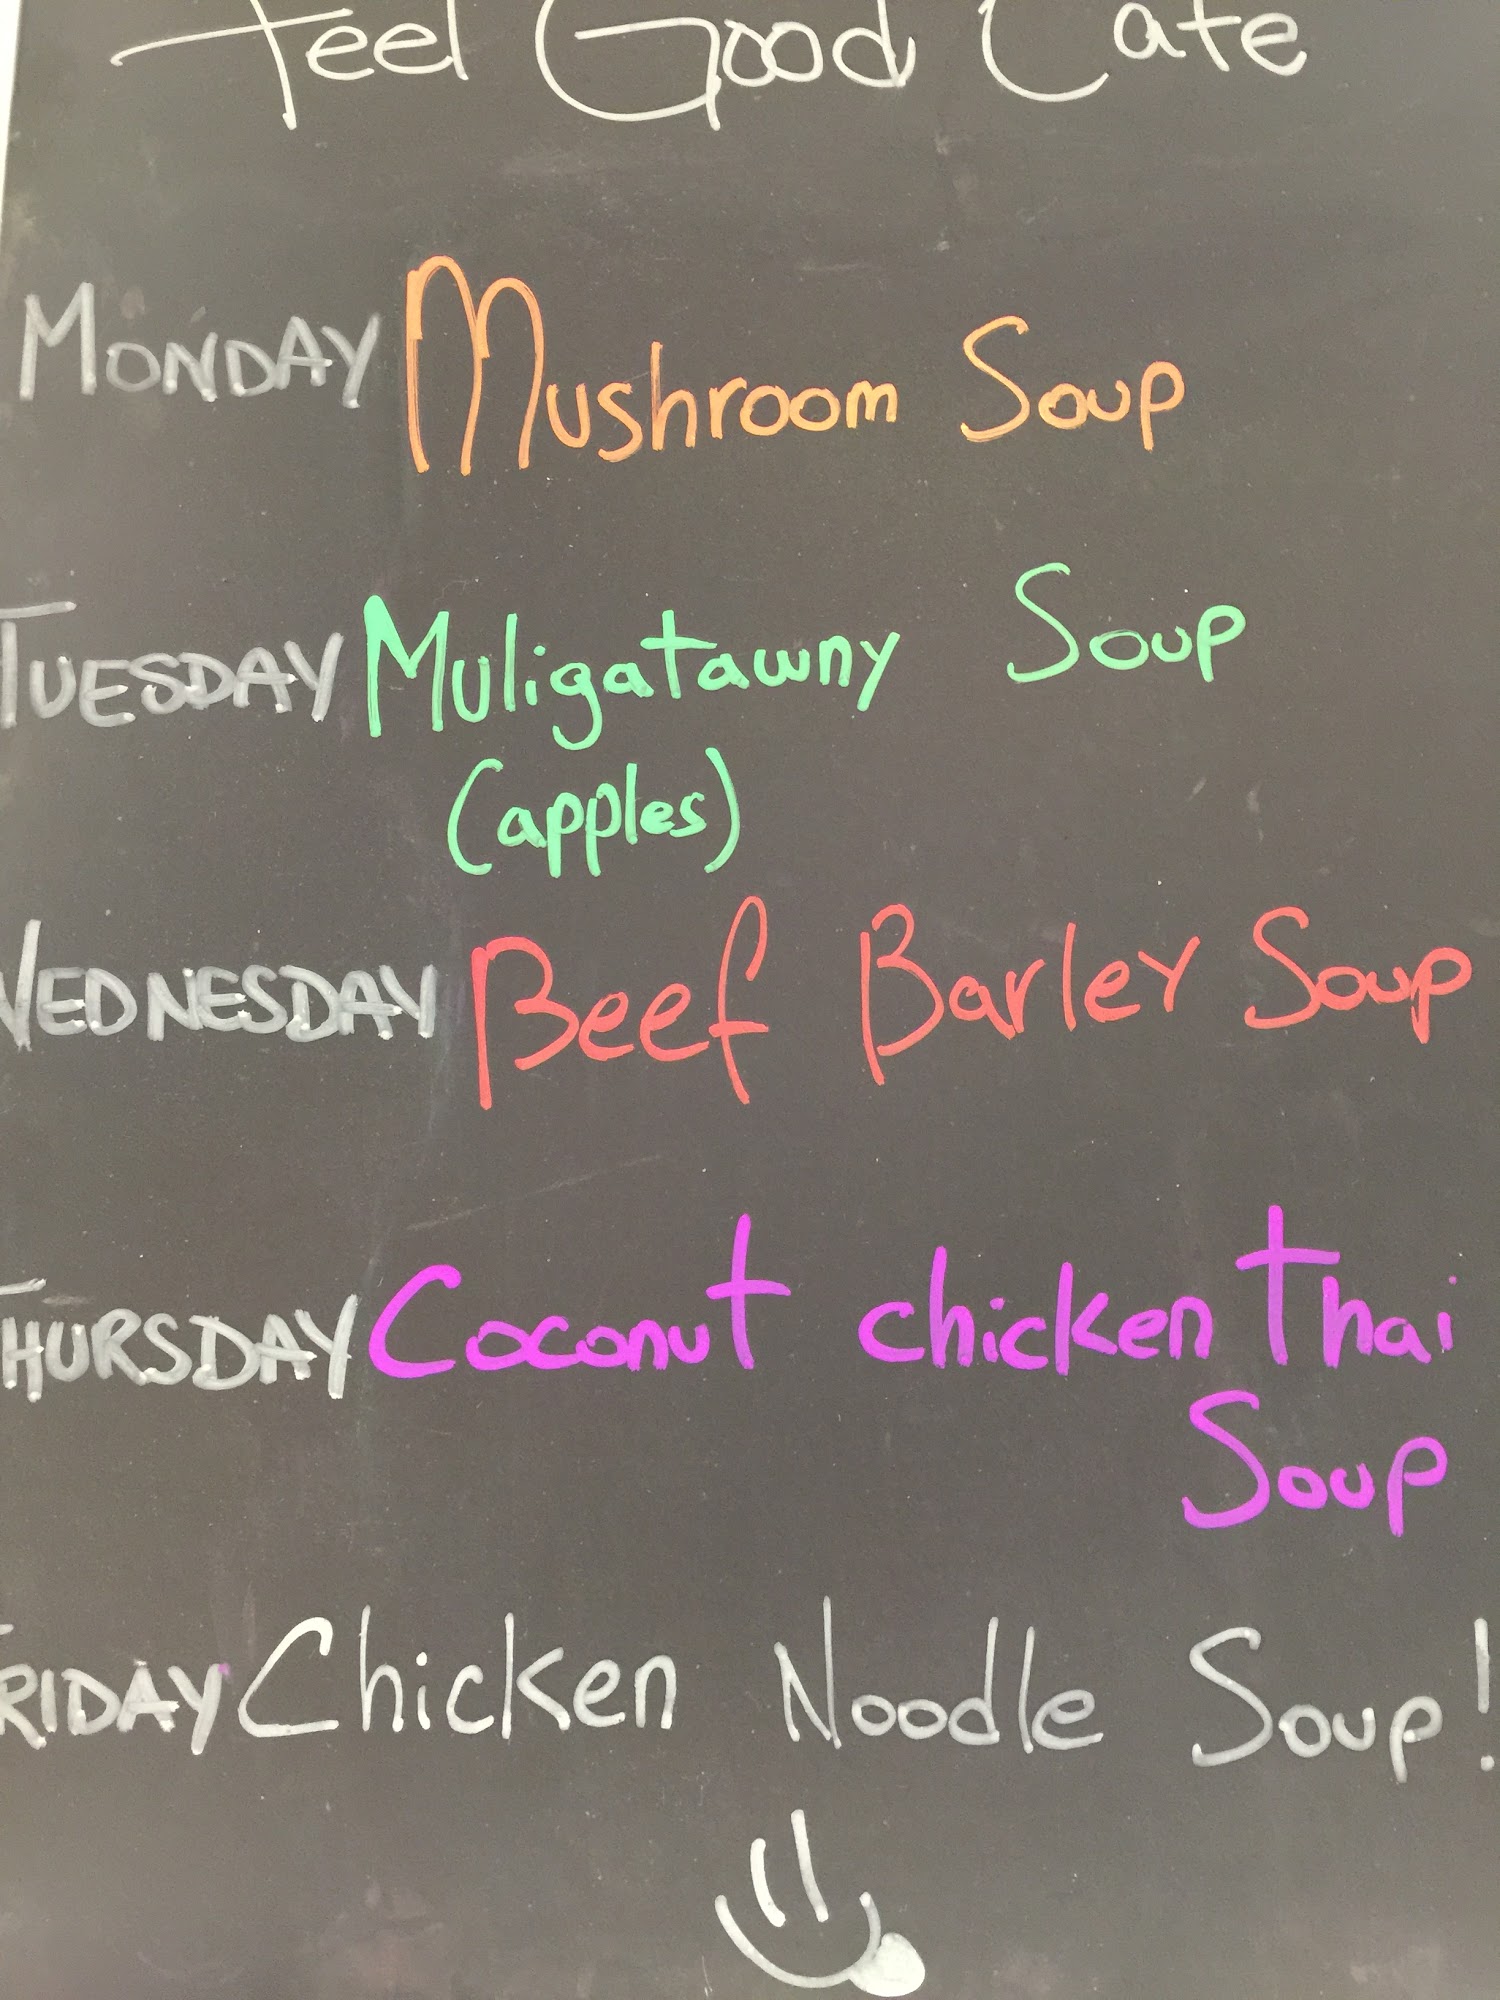 Feel Good Cafe
MONDAY Mushroom Soup
TUESDAY Muligatawny Soup
(apples)
WEDNESDAY Beef Barley Soup
THURSDAY Coconut chicken Thai
Soup
FRIDAY Chicken Noodle Soup!